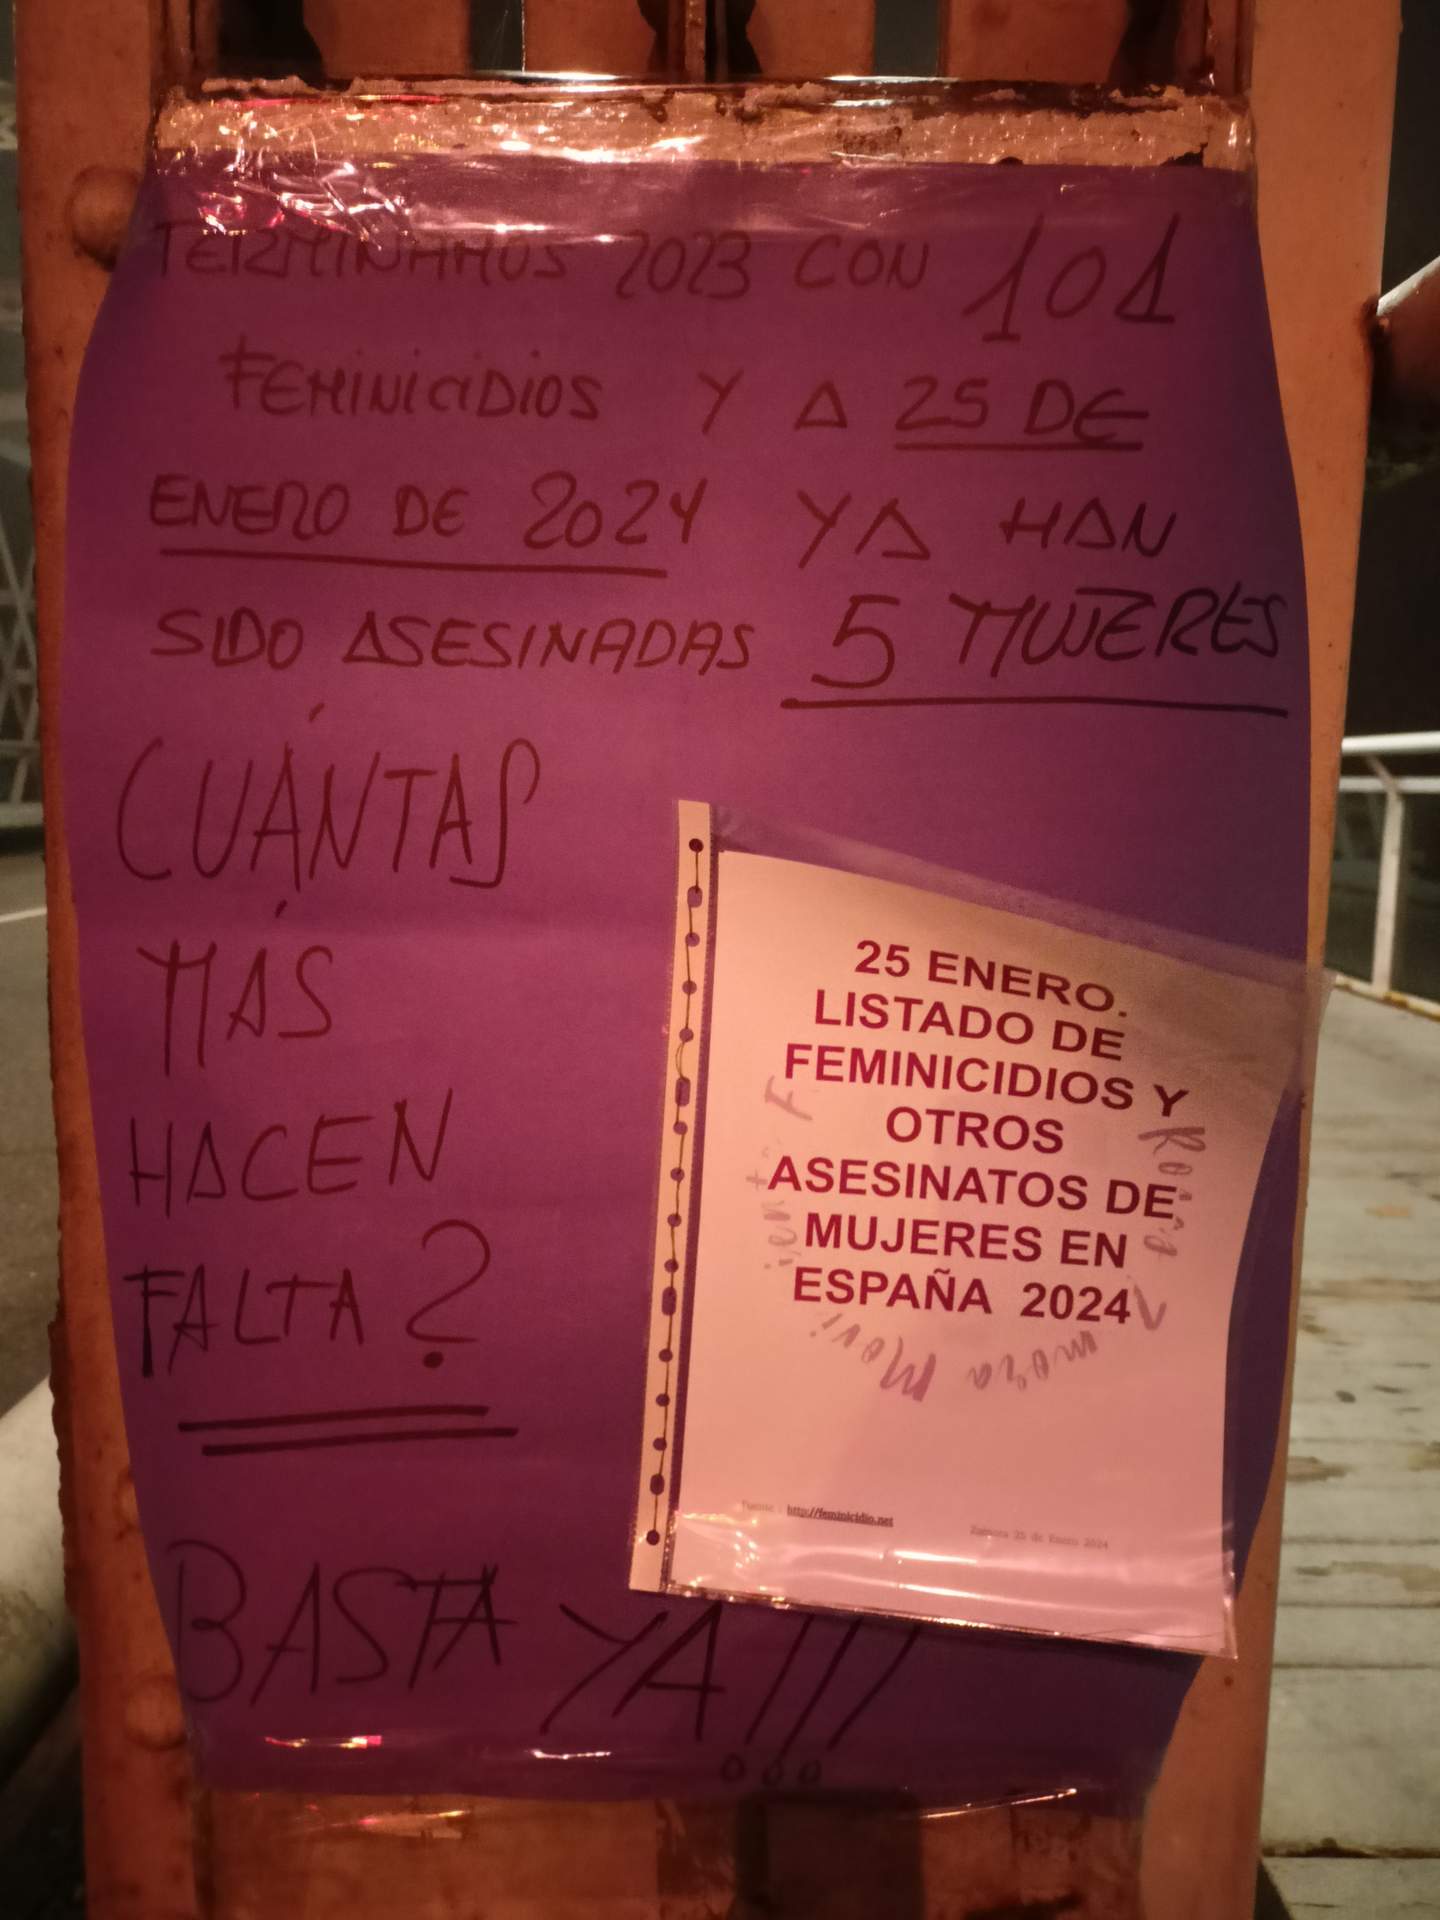 TERMINAMOS 2023 CON 101
FEMINICIDIOS Y A 25 DE
ENERO DE 2024 YA HAN
SIDO ASESINADAS 5 MUJERES
CUÁNTAS
MÁS
HACEN
FALTA?
BASTA YA!!!
25 ENERO.
LISTADO DE
FEMINICIDIOS Y
OTROS
ASESINATOS DE
MUJERES EN
ESPAÑA 2024
Fuente : http://feminicidio.net
Zamora 25 de Enero 2024